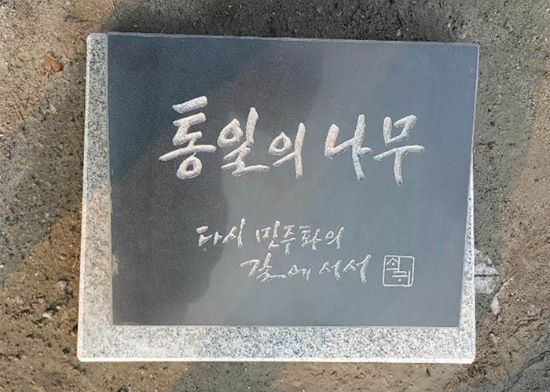 통일의 나무
다시 민주화의
길에 서서